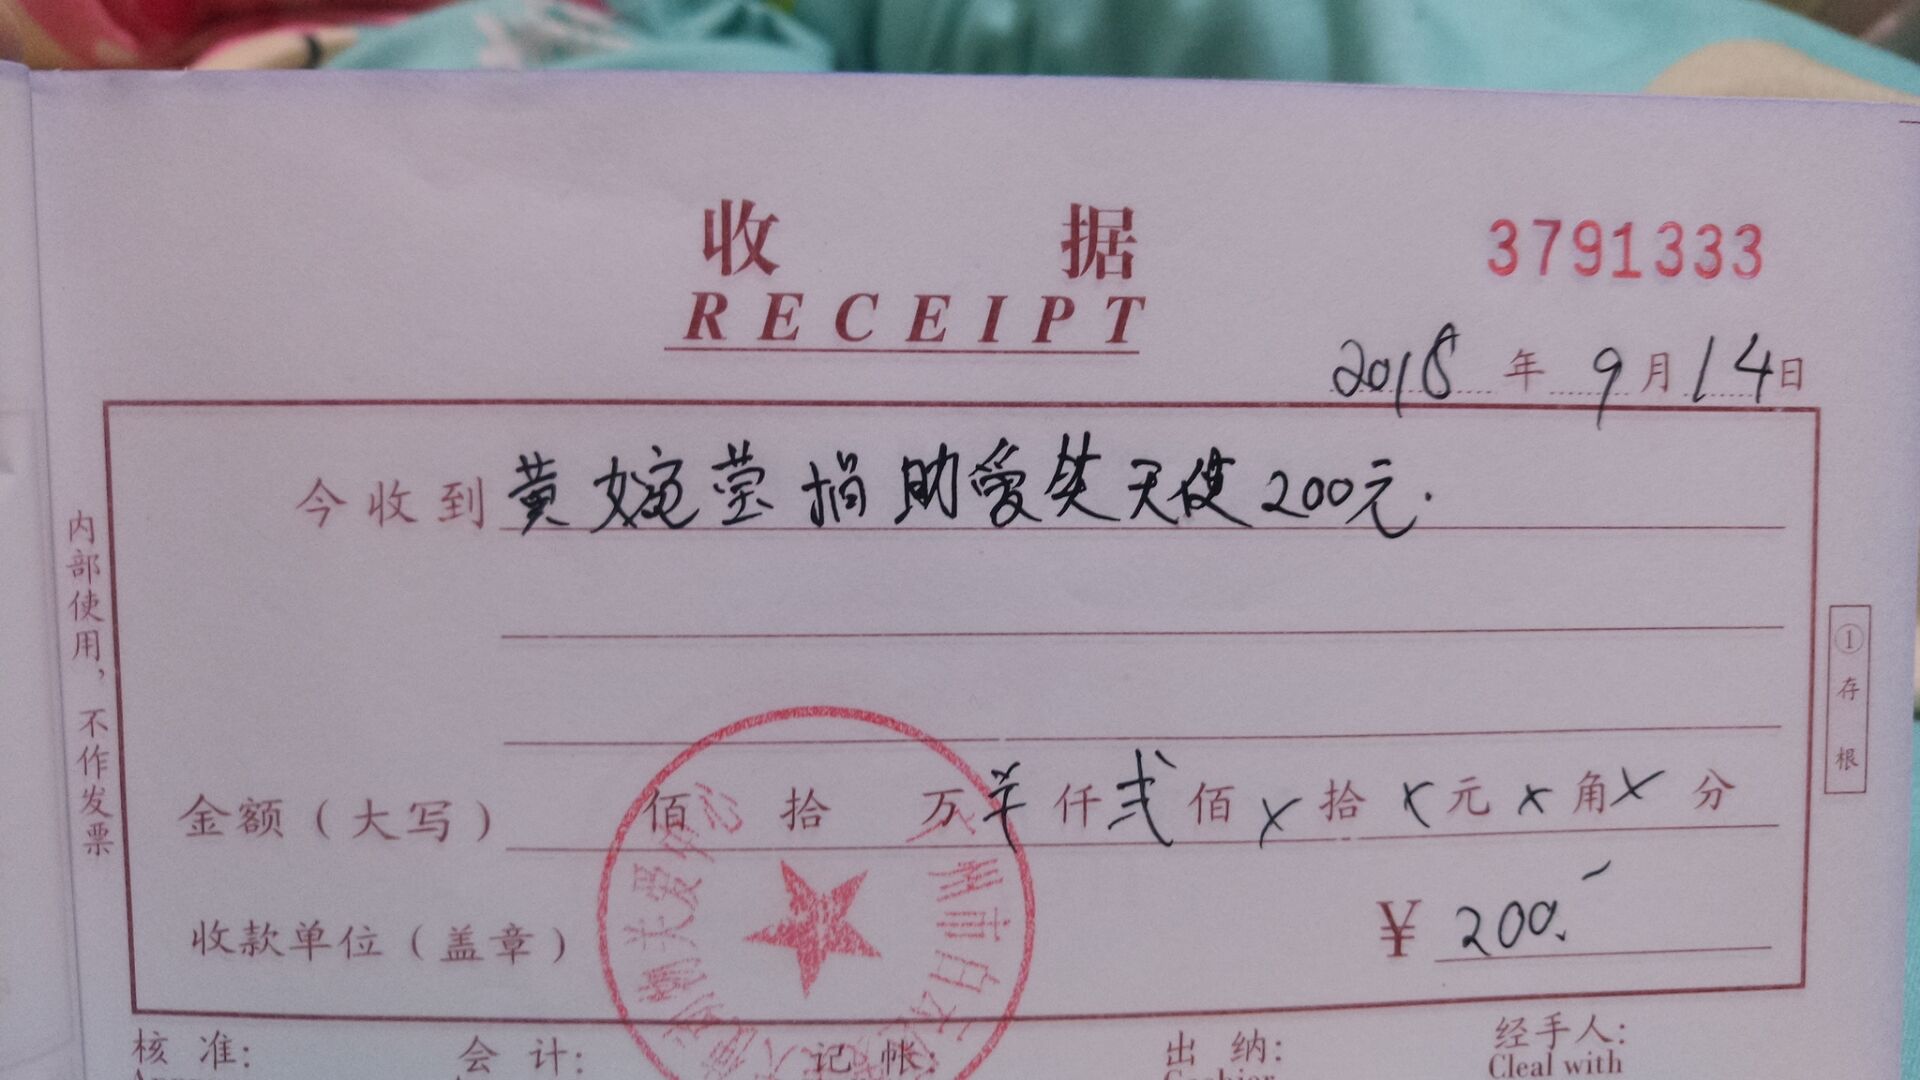 收 据
RECEIPT
3791333
2018 年 9 月 14 日
今收到 黄婉莹捐助爱笑天使200元.
金额（大写） 佰 拾 万 羊 仟 弍 佰 x 拾 x 元 x 角 x 分
收款单位（盖章） ¥ 200.
核 准: 会 计: 记 帐: 出 纳: 经手人:
Cleal with
内部使用，不作发票
① 存根